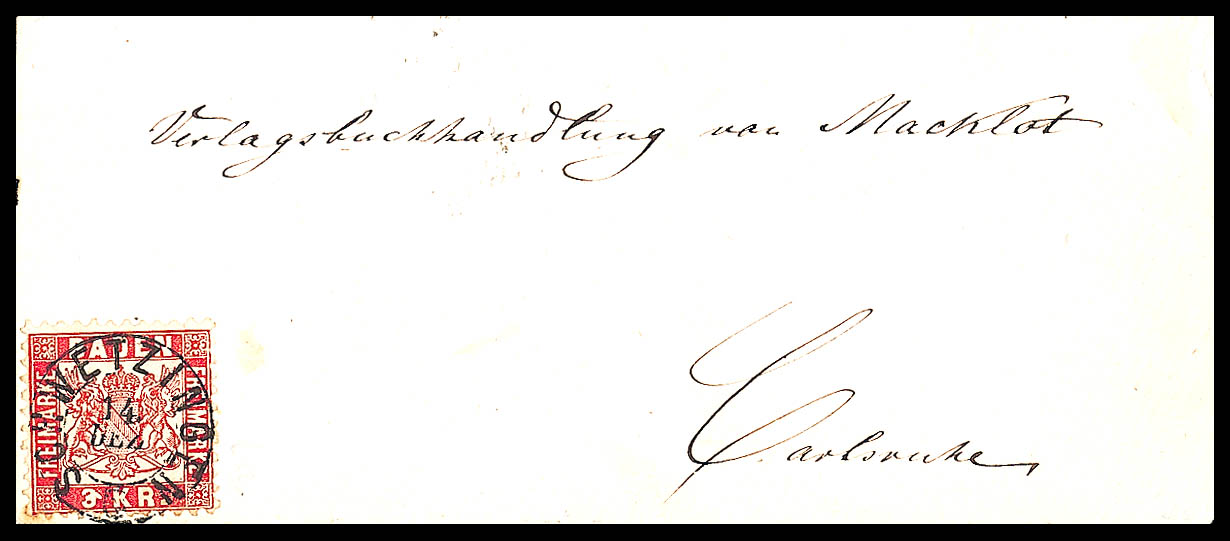 Verlagsbuchhandlung von Macklot
Carlsruhe
BADEN
FREIMARKE
FREIMARKE
3 KR.
SCHWETZINGEN
14
DEZ